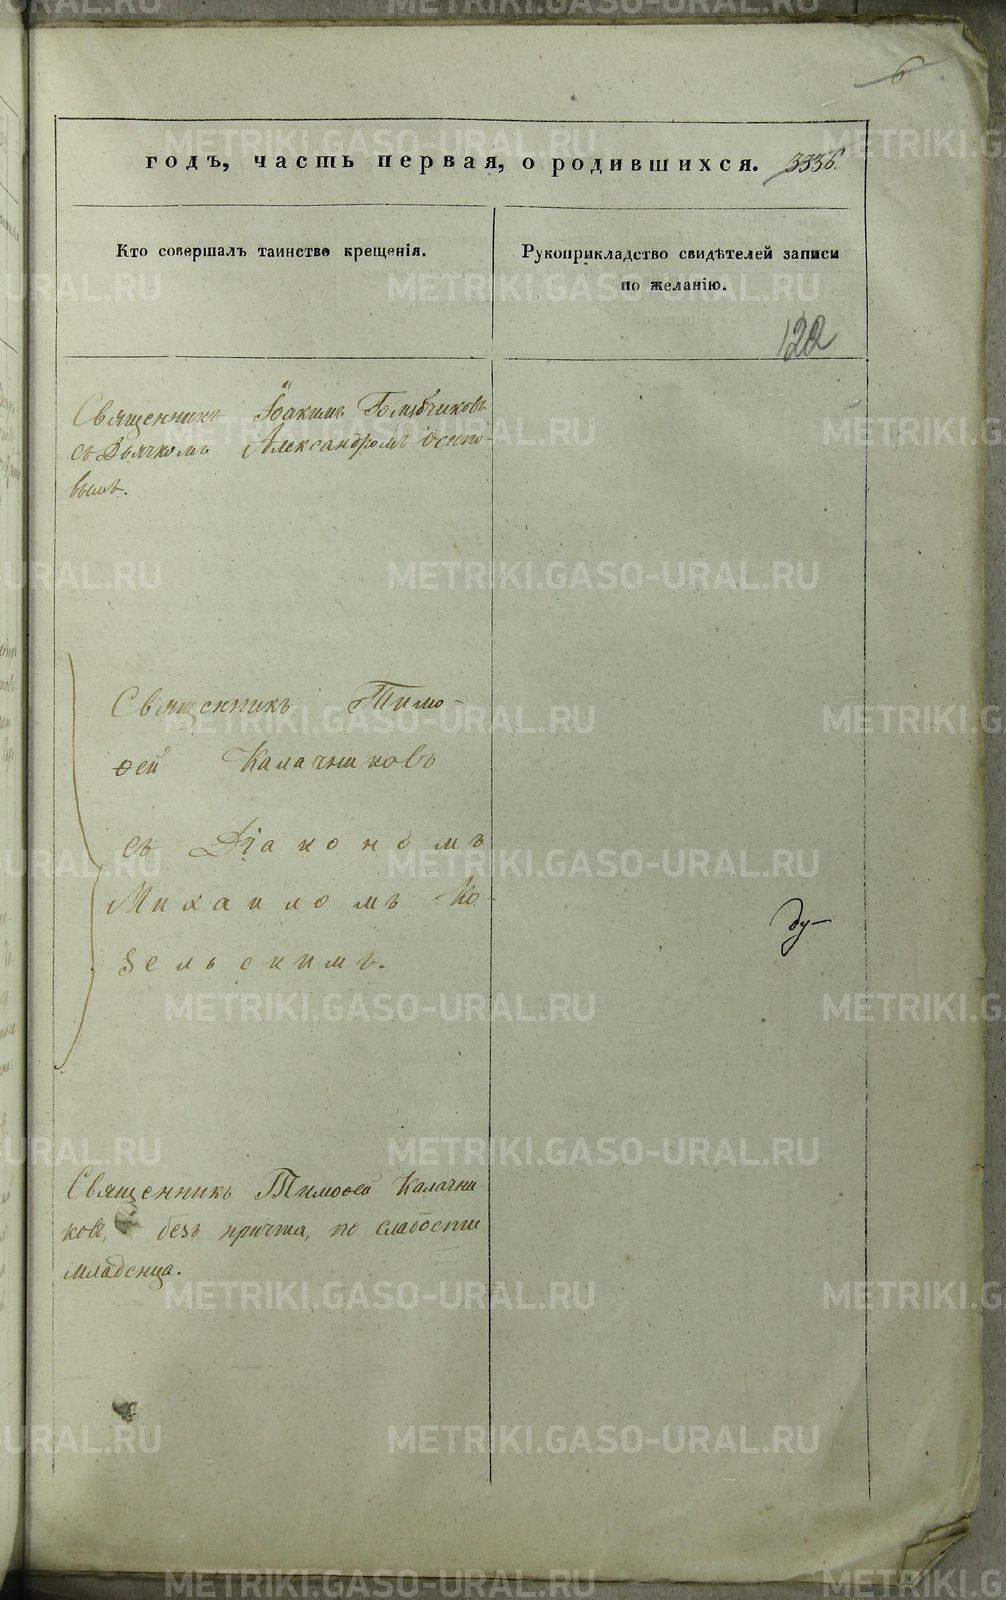 6
годъ, часть первая, о родившихся. 3336.
Кто совершалъ таинство крещенія.
Рукоприкладство свидѣтелей записи
по желанію.
122
Священникъ Іоакимъ Голубчиковъ
съ Дьячкомъ Александромъ Осипо-
вымъ.
Священникъ Тимо-
ѳей Калачниковъ
съ Діакономъ
Михаиломъ Ко-
зельскимъ.
Священникъ Тимоѳей Калачни-
ковъ, безъ причта, по слабости
младенца.
METRIKI.GASO-URAL.RU